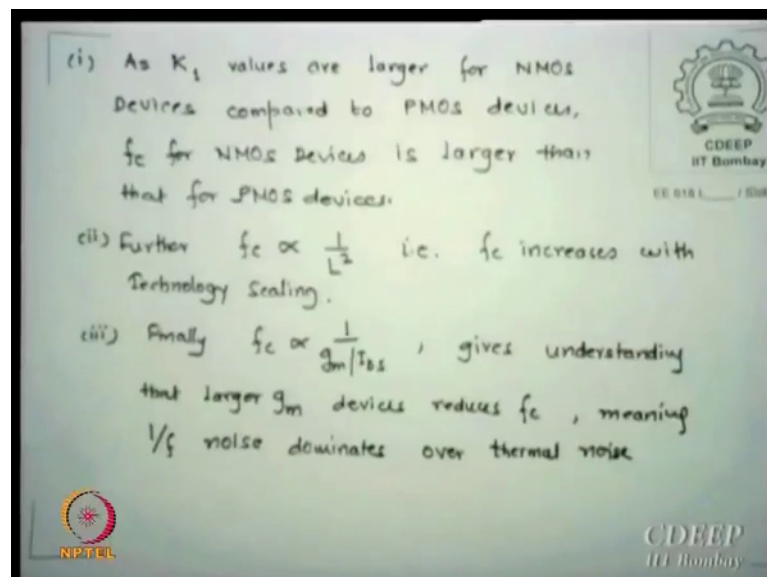 (i) As K₁ values are larger for NMOS
Devices compared to PMOS devices,
fc for NMOS Devices is larger than
that for PMOS devices.
(ii) Further fc ∝ 1/L² i.e. fc increases with
Technology Scaling.
(iii) Finally fc ∝ 1/gm/IDS , gives understanding
that larger gm devices reduces fc , meaning
1/f noise dominates over thermal noise
CDEEP
IIT Bombay
NPTEL
CDEEP
IIT Bombay